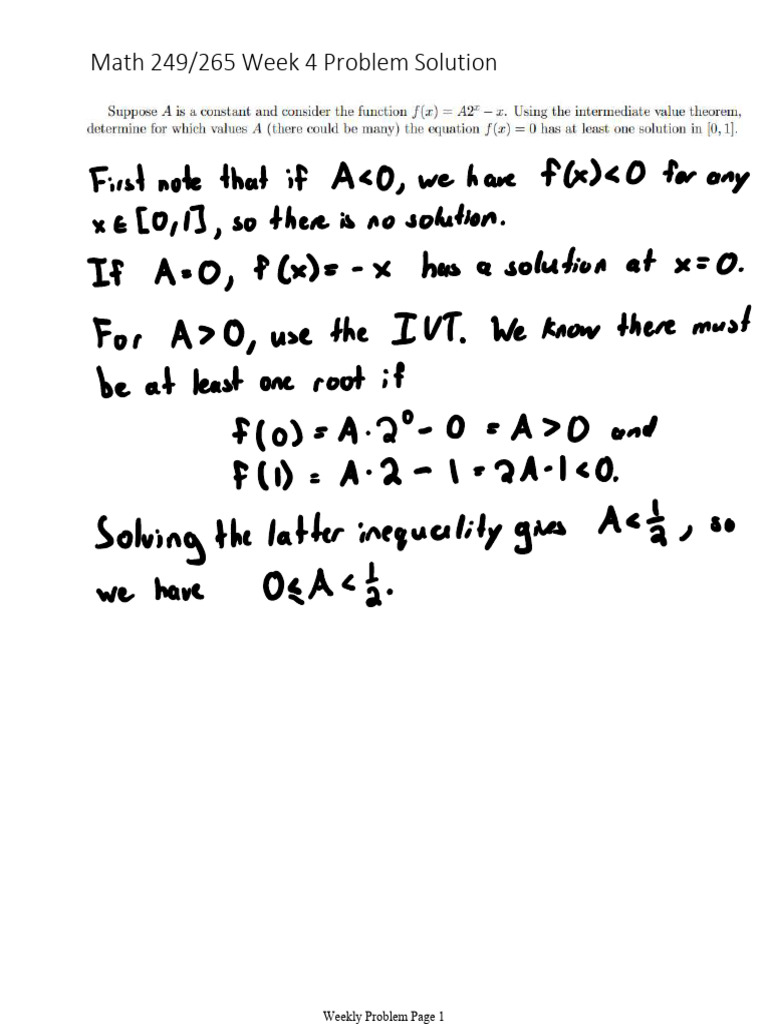 Math 249/265 Week 4 Problem Solution
Suppose A is a constant and consider the function f(x) = A2ˣ − x. Using the intermediate value theorem,
determine for which values A (there could be many) the equation f(x) = 0 has at least one solution in [0, 1].
First note that if A<0, we have f(x)<0 for any
x ∈ [0,1], so there is no solution.
If A=0, f(x)= -x has a solution at x=0.
For A>0, use the IVT. We know there must
be at least one root if
f(0) = A·2⁰ - 0 = A > 0 and
f(1) = A·2 - 1 = 2A-1<0.
Solving the latter inequality gives A<1/2, so
we have 0≤A<1/2.
Weekly Problem Page 1